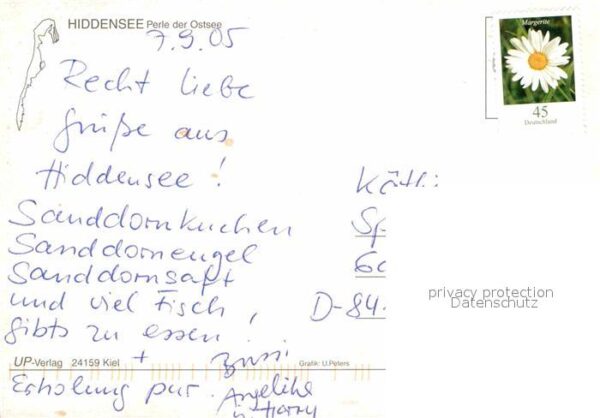 HIDDENSEE Perle der Ostsee
7.9.05
Recht liebe
Grüße aus
Hiddensee !
Sanddornkuchen
Sanddornengel
Sanddornsaft
und viel Fisch,
gibts zu essen !
+
Erholung pur.
Bussi
Angelika
u. Harry
Margerite
45
Deutschland
Sp
D-84
privacy protection
Datenschutz
UP-Verlag 24159 Kiel
Grafik: U.Peters